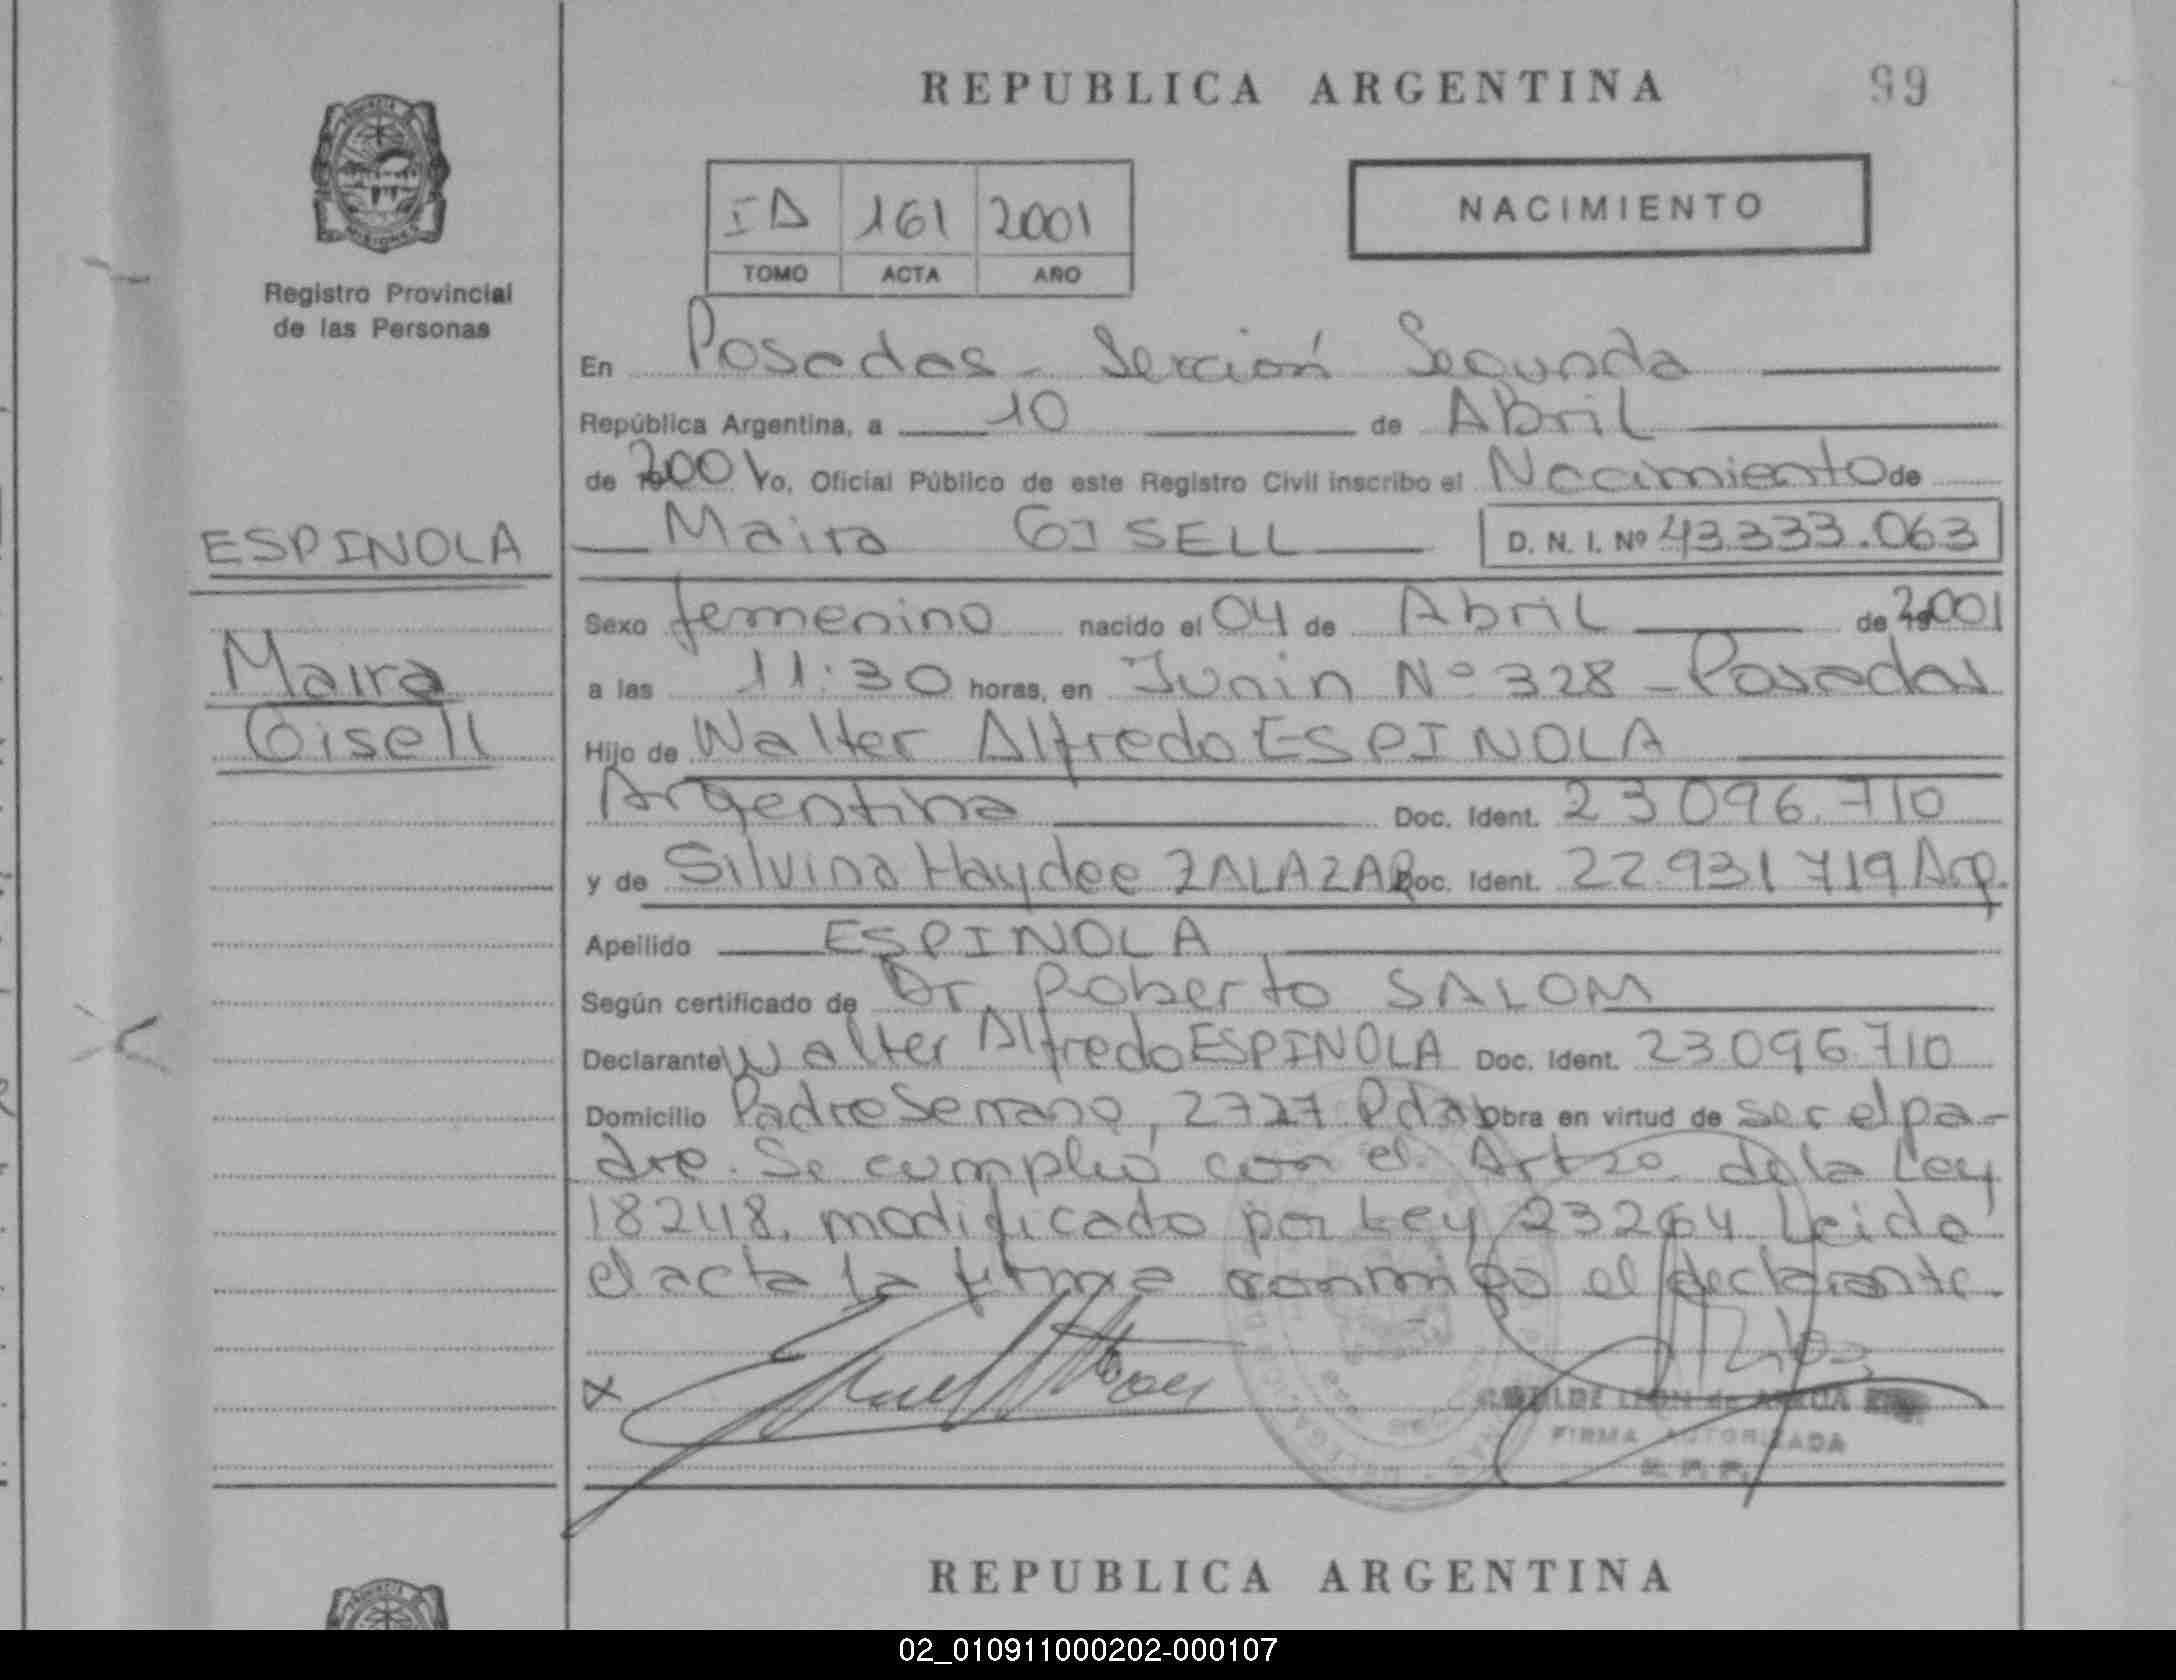 REPUBLICA ARGENTINA
99
PROVINCIA
MISIONES
Registro Provincial
de las Personas
ID 161 2001
TOMO ACTA AÑO
NACIMIENTO
En Posadas - Sección Segunda
República Argentina, a 10 de Abril
de 2001 Yo, Oficial Público de este Registro Civil inscribo el Nacimiento de
Maira GISELL D. N. I. Nº 43.333.063
ESPINOLA
Maira
Gisell
Sexo femenino nacido el 04 de Abril de 2001
a las 11:30 horas, en Junin Nº 328 - Posadas
Hijo de Walter Alfredo ESPINOLA
Argentina Doc. Ident. 23096.710
y de Silvina Haydee ZALAZAR Doc. Ident. 22.931719 Arg.
Apellido ESPINOLA
Según certificado de Dr. Roberto SALOM
Declarante Walter Alfredo ESPINOLA Doc. Ident. 23.096.710
Domicilio Padre Serrano, 2727 Pdas Obra en virtud de ser el pa-
dre. Se cumplió con el Art de la Ley
18248, modificado por Ley 23264 Leida
el acta la firma conmigo el declarante.
x
FIRMA AUTORIZADA
R. P. P.
REPUBLICA ARGENTINA
PROVINCIA
02_010911000202-000107